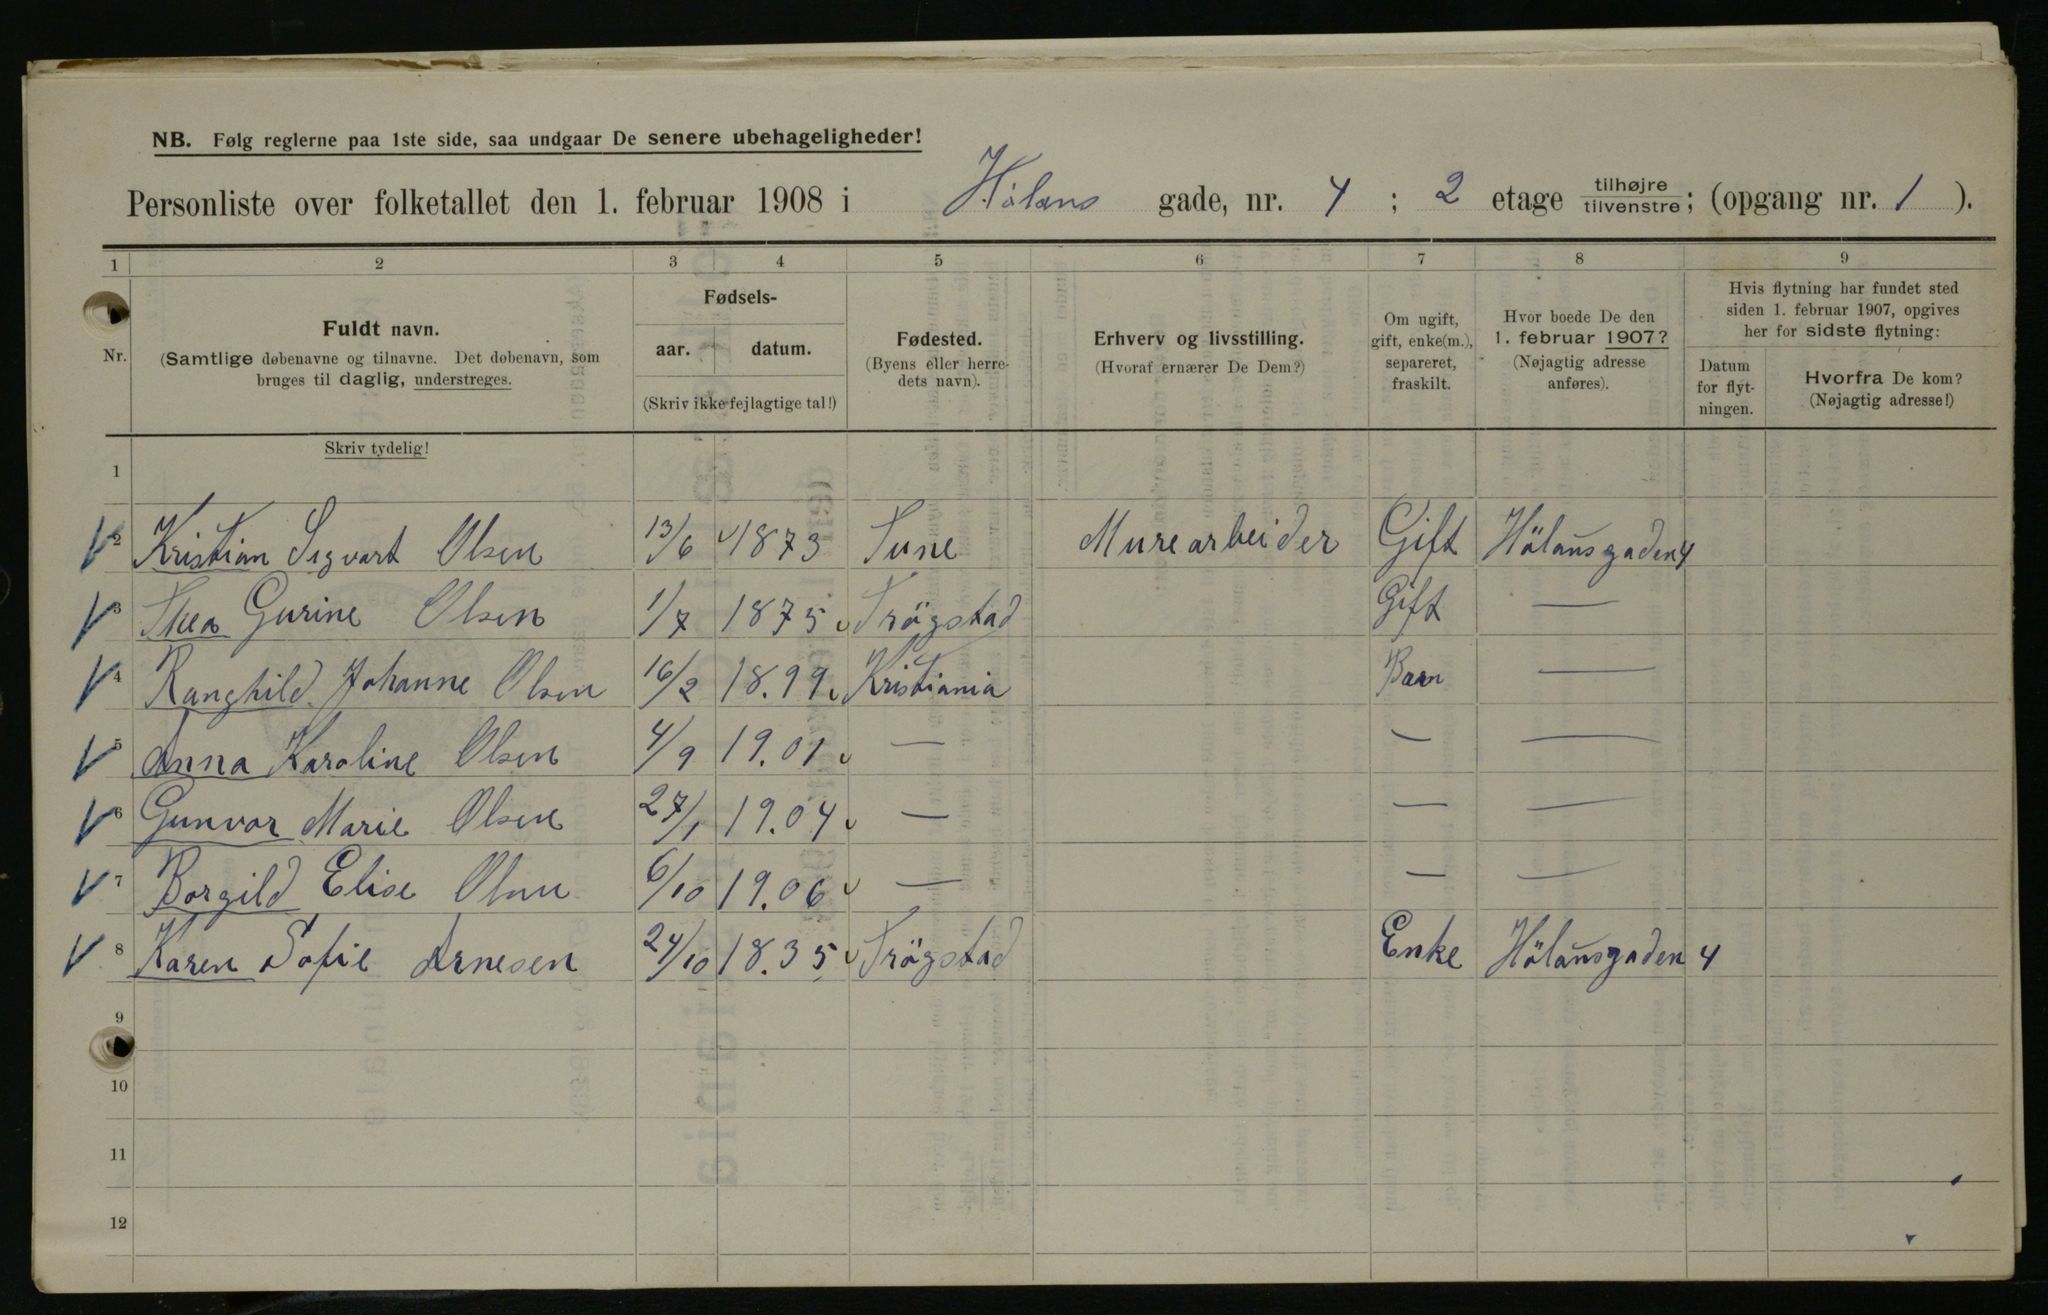 NB. Følg reglerne paa 1ste side, saa undgaar De senere ubehageligheder!
Personliste over folketallet den 1. februar 1908 i Hölans gade, nr. 4 ; 2 etage tilhøjre tilvenstre ; (opgang nr. 1 ).
1 2 3 4 5 6 7 8 9
Nr.
Fuldt navn.
(Samtlige døbenavne og tilnavne. Det døbenavn, som
bruges til daglig, understreges.
Skriv tydelig!
Fødsels-
aar. datum.
(Skriv ikke fejlagtige tal!)
Fødested.
(Byens eller herre-
dets navn).
Erhverv og livsstilling.
(Hvoraf ernærer De Dem?)
Om ugift,
gift, enke(m.),
separeret,
fraskilt.
Hvor boede De den
1. februar 1907?
(Nøjagtig adresse
anføres).
Hvis flytning har fundet sted
siden 1. februar 1907, opgives
her for sidste flytning:
Datum
for flyt-
ningen.
Hvorfra De kom?
(Nøjagtig adresse!)
1
2 Kristian Sigvart Olsen 13/6 1873 Tune Murearbeider Gift Hölansgaden 4
3 Thea Gurine Olsen 1/7 1875 Trögstad Gift —
4 Ranghild Johanne Olsen 16/2 18.99 Kristiania Barn —
5 Anna Karoline Olsen 4/9 19.01 — — —
6 Gunvor Marie Olsen 27/1 19.04 — — —
7 Borgild Elise Olsen 6/10 19.06 — — —
8 Karen Sofie Arnesen 24/10 18.35 Trögstad Enke Hölansgaden 4
9
10
11
12